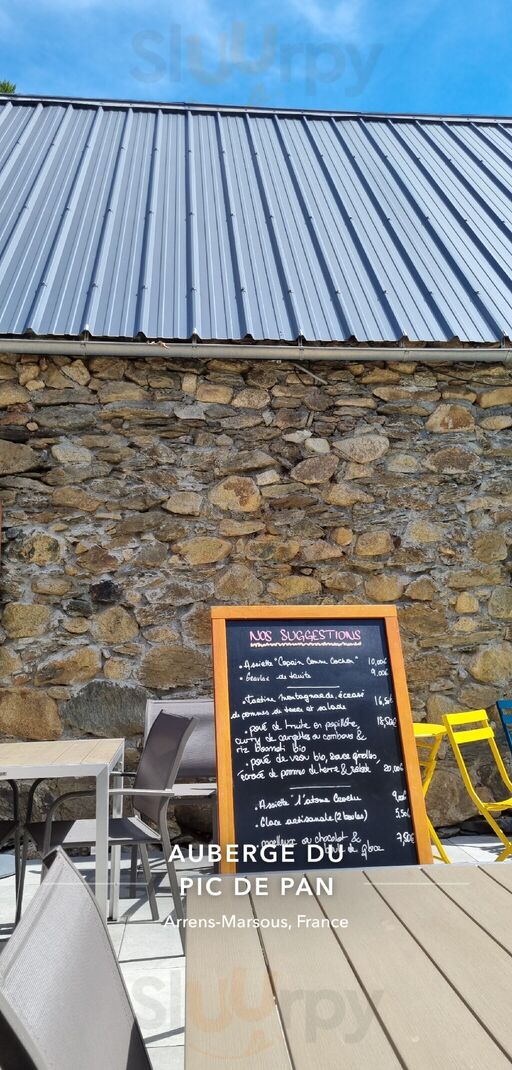 Sluurpy
NOS SUGGESTIONS
• Assiette "Copain comme Cochon" 10,00€
de truite 9,00€
• Tartine montagnarde, écrasé 16,50€
de pommes de terre et salade
• pavé de truite en papillote, 18,50€
curry de courgettes au combava &
riz basmati bio
• pavé de veau bio, sauce girolles,
écrasé de pomme de terre & salade 20,00€
• Assiette 9,00€
• Glace artisanale (2 boules) 5,50€
• moelleux au chocolat & 7,50€
boule de glace
AUBERGE DU
PIC DE PAN
Arrens-Marsous, France
Sluurpy